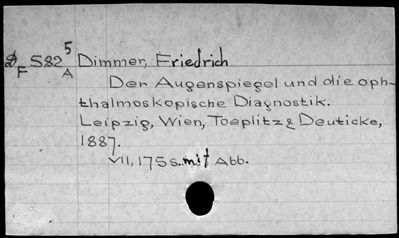 D 582 5 Dimmer, Friedrich
F A
Der Augenspiegel und die oph-
thalmoskopische Diagnostik.
Leipzig, Wien, Toeplitz & Deuticke,
1887.
VII, 175 S. mit Abb.